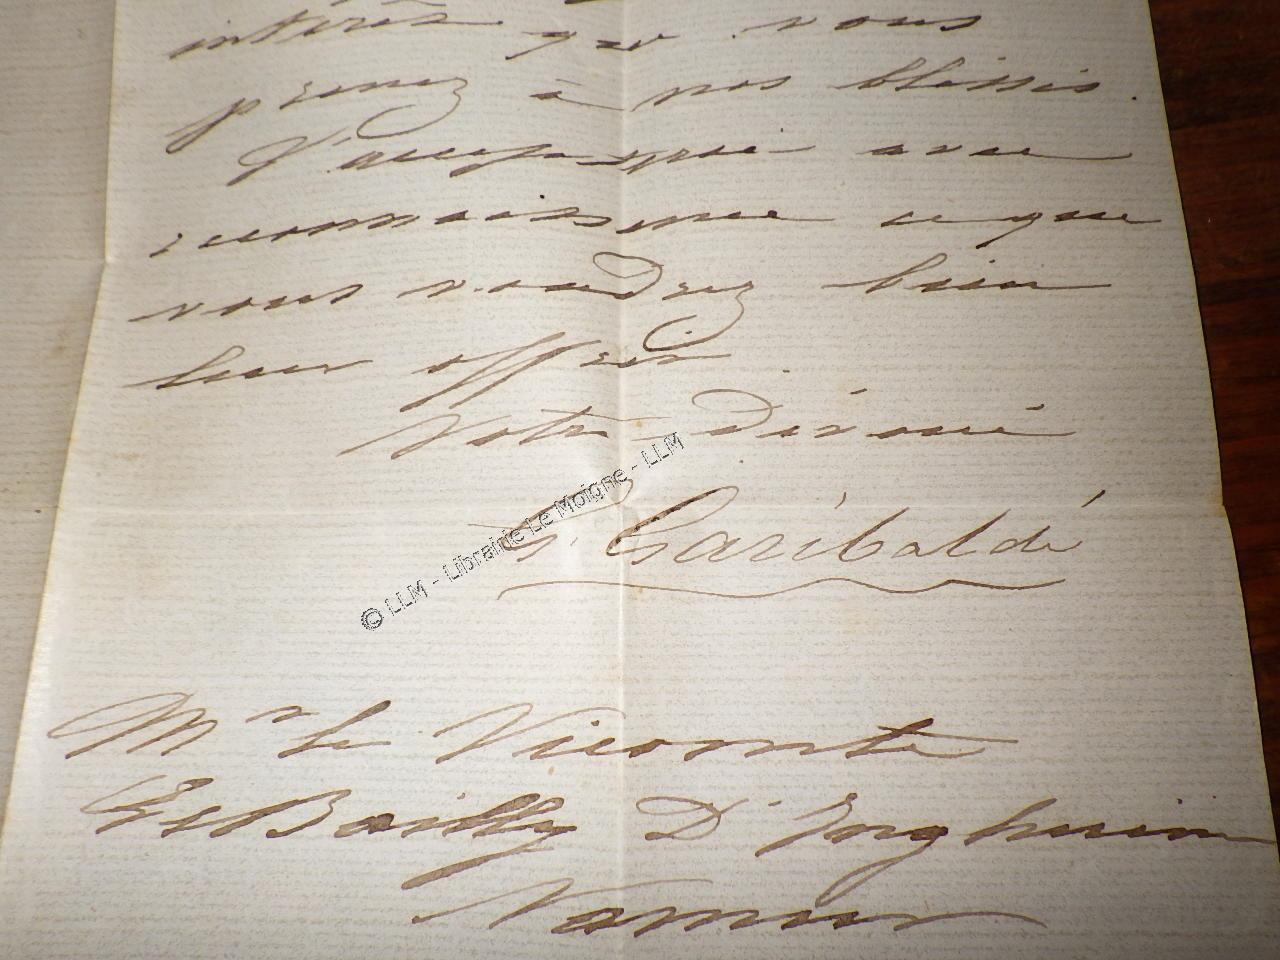 intérêt que vous
prenez à nos blessés.
J'accepterai avec
reconnaissance ce que
vous voudrez bien
leur offrir
Votre Dévoué
G. Garibaldi
© LLM - Librairie Le Moigne - LLM
Mr le Vicomte
Bailly D'Inghuin
Namur